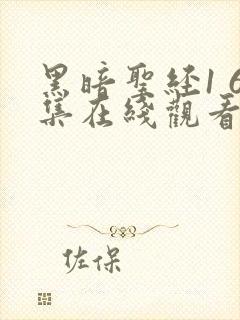 黑暗聖経1 6
集在綫觀看
佐保